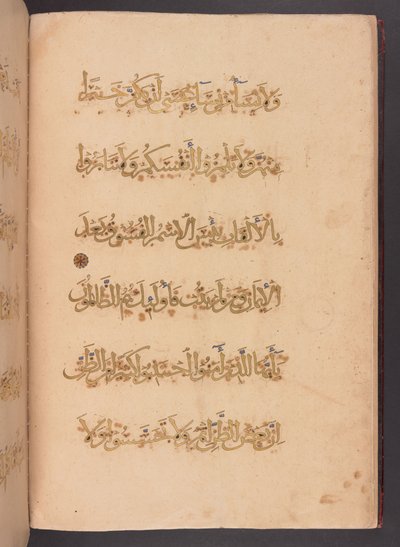 وَلَا نِسَاءٌ مِنْ نِسَاءٍ عَسَىٰ أَنْ يَكُنَّ خَيْرًا
مِنْهُنَّ وَلَا تَلْمِزُوا أَنْفُسَكُمْ وَلَا تَنَابَزُوا
بِالْأَلْقَابِ بِئْسَ الِاسْمُ الْفُسُوقُ بَعْدَ
الْإِيمَانِ وَمَنْ لَمْ يَتُبْ فَأُولَٰئِكَ هُمُ الظَّالِمُونَ
يَا أَيُّهَا الَّذِينَ آمَنُوا اجْتَنِبُوا كَثِيرًا مِنَ الظَّنِّ
إِنَّ بَعْضَ الظَّنِّ إِثْمٌ وَلَا تَجَسَّسُوا وَلَا